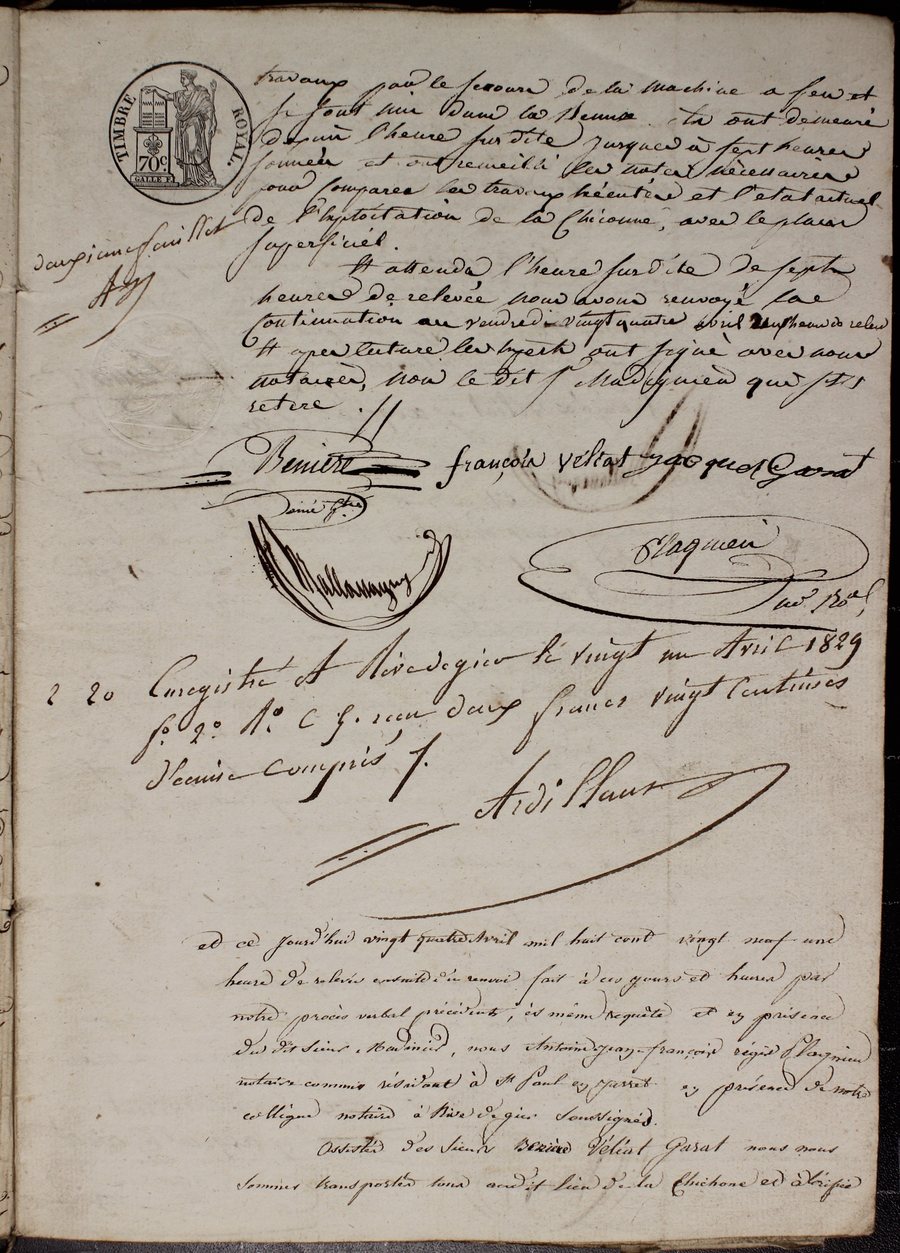 TIMBRE ROYAL.
70c.
GALLE F.
travaux par le secours de la machine a feu et
se sont mis dans la Benne. ils ont demeuré
depuis l'heure susdite jusques à sept heures
sonnées et ont recueilli les notes nécessaires
pour comparer les travaux exécutés et l'etat actuel
de l'Exploitation de la Chicanne, avec le plan
superficiel.
deuxieme feuillet
Et attendu l'heure susdite de sept
heures de relevée nous avons renvoyé la
Continuation au vendredi vingt quatre avril une heure de relevée
Et après lecture les experts ont signé avec nous
notaires, non le dit Sr Madignier qui s'est
retiré ./.
Benière françois véliat Jacques Garat
Plagnieu
Enregistré A Rivedegier le vingt un Avril 1829
2 20
fo. 2o. Ro. C 5. reçu deux francs vingt Centimes
décime compris /.
Ardillaux
et ce jourd'hui vingt quatre Avril mil huit cent vingt neuf une
heure de relevée ensuite du renvoi fait à ces jours et heures par
notre procès verbal précédent, ès même requête et en présence
du dit sieur Madinier, nous Antoine jean françois régis Plagnieu
notaire commis résidant à St Paul en jarret en présence de notre
collègue notaire à Rive de gier soussignés.
Assistés des sieurs Benière Véliat Garat nous nous
sommes transportés tous au dit lieu de la Chichone et à l'orifice